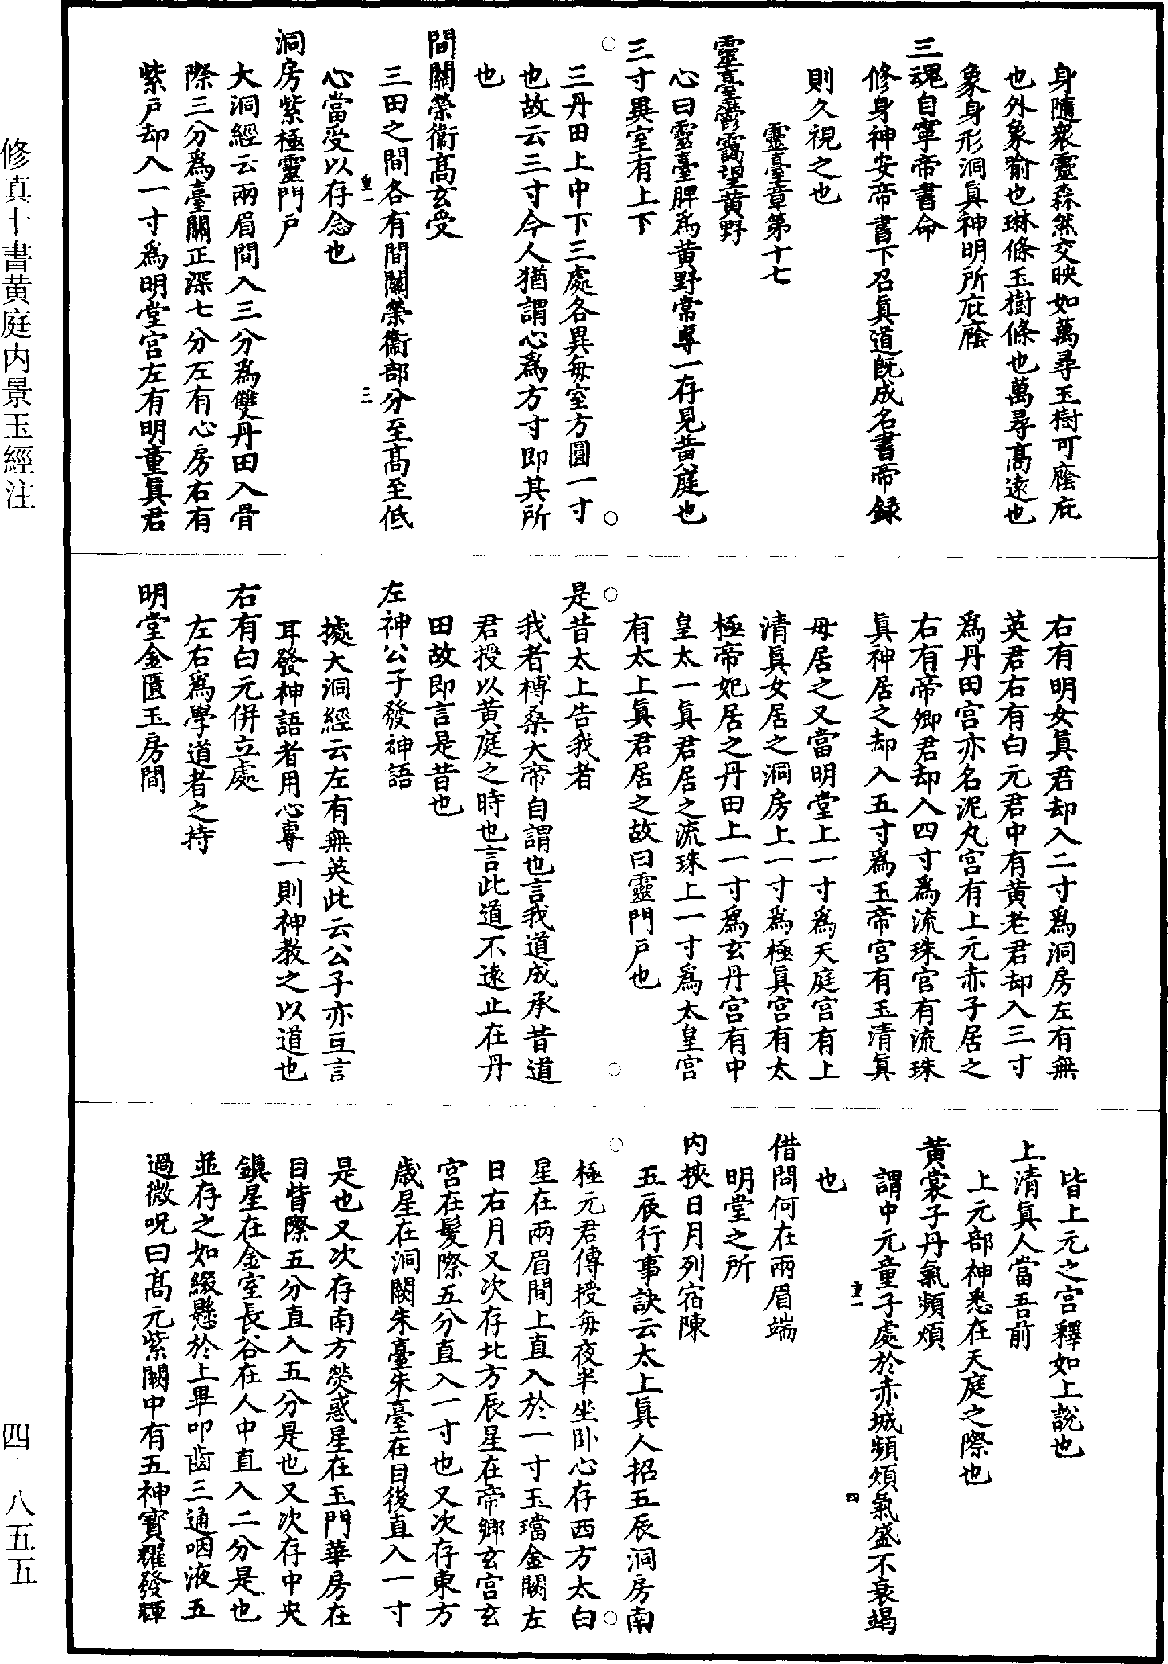 身隨衆靈森然交映如萬尋玉樹可廕庇
也外象喻也琳條玉樹條也萬尋高遠也
象身形洞真神明所庇廕
三魂自寧帝書命
修身神安帝書下召真道既成名書帝録
則久視之也
靈臺章第十七
靈臺鬱靄望黃野
心曰靈臺脾爲黃野常專一存見黃庭也
三寸異室有上下
三丹田上中下三處各異每室方圓一寸
也故云三寸今人猶謂心爲方寸即其所
也
間關榮衛高玄受
三田之間各有間關榮衛部分至高至低
心當受以存念也
洞房紫極靈門戶
大洞經云兩眉間入三分爲雙丹田入骨
際三分爲臺闕正深七分左有心房右有
紫戶却入一寸爲明堂宫左有明童真君
右有明女真君却入二寸爲洞房左有無
英君右有白元君中有黃老君却入三寸
爲丹田宫亦名泥丸宫有上元赤子居之
右有帝卿君却入四寸爲流珠宫有流珠
真神居之却入五寸爲玉帝宫有玉清真
母居之又當明堂上一寸爲天庭宫有上
清真女居之洞房上一寸爲極真宫有太
極帝妃居之丹田上一寸爲玄丹宫有中
皇太一真君居之流珠上一寸爲太皇宫
有太上真君居之故曰靈門戶也
是昔太上告我者
我者榑桑大帝自謂也言我道成承昔道
君授以黃庭之時也言此道不遠止在丹
田故即言是昔也
左神公子發神語
據大洞經云左有無英此云公子亦互言
耳發神語者用心專一則神教之以道也
右有白元併立處
左右爲學道者之持
明堂金匱玉房間
皆上元之宫釋如上說也
上清真人當吾前
上元部神悉在天庭之際也
黃裳子丹氣頻煩
謂中元童子處於赤城頻煩氣盛不衰竭
也
借問何在兩眉端
明堂之所
内挾日月列宿陳
五辰行事訣云太上真人招五辰洞房南
極元君傳授每夜半坐卧心存西方太白
星在兩眉間上直入於一寸玉璫金闕左
日右月又次存北方辰星在帝鄉玄宫玄
宫在髮際五分直入一寸也又次存東方
歲星在洞闕朱臺朱臺在目後直入一寸
是也又次存南方熒惑星在玉門華房在
目眥際五分直入五分是也又次存中央
鎮星在金室長谷在人中直入二分是也
並存之如綴懸於上畢叩齒三通咽液五
過微呪曰高元紫闕中有五神寶耀發輝
修真十書黃庭内景玉經注
四 八五五